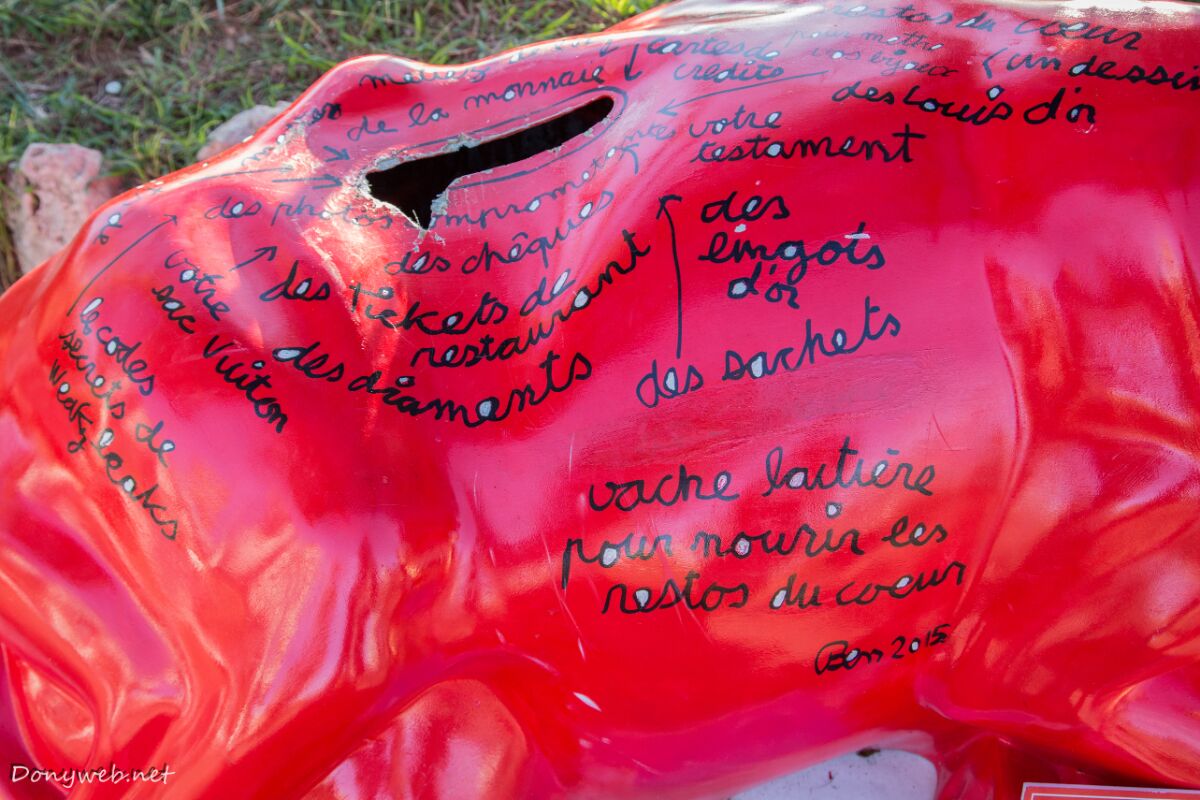 restos du coeur
cartes de
crédits
pour mettre
vos bijoux
(un dessin
de la monnaie
des Louis d'or
votre
testament
des photos compromettantes
des chêques
des
lingots
d'or
votre
sac Vuiton
des tickets de
restaurant
des diaments
des sachets
les codes
secrets de
Weaky leaks
vache laitière
pour nourir les
restos du coeur
Ben 2015
Donyweb.net